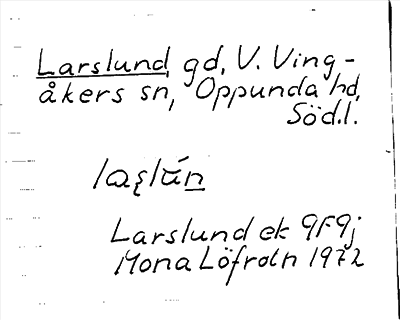 Larslund, gd, V. Ving-
åkers sn, Oppunda hd,
Söd.l.
Larslund ek 9F9j
Mona Löfroth 1972